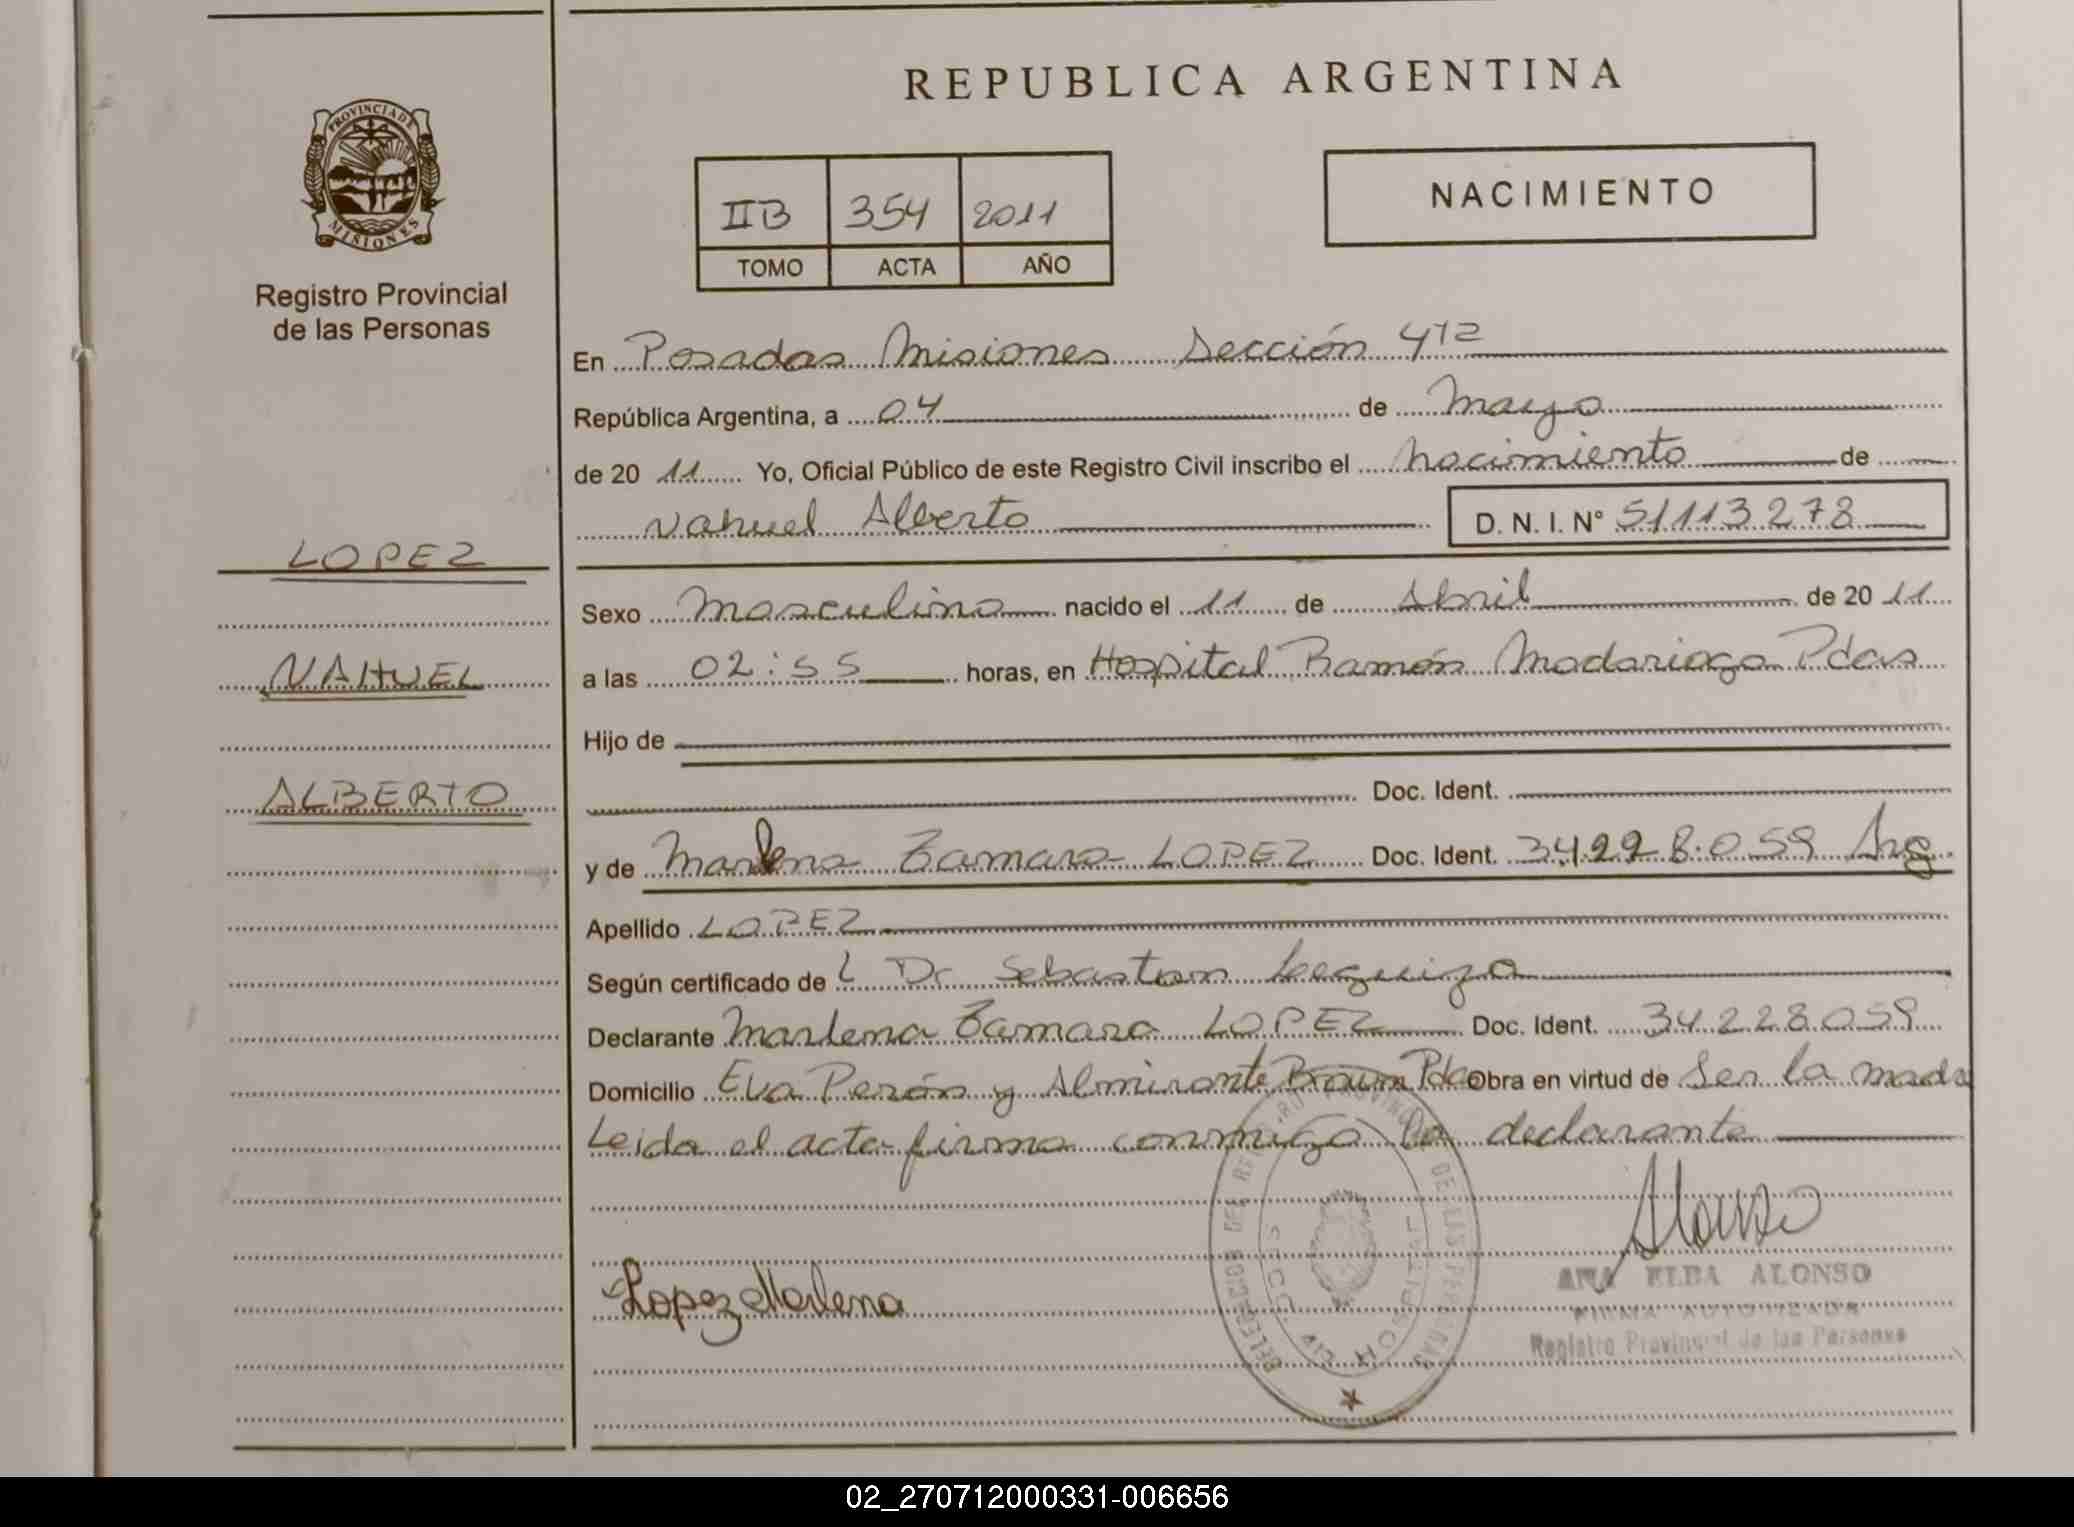 REPUBLICA ARGENTINA
PROVINCIA DE
MISIONES
Registro Provincial
de las Personas
NACIMIENTO
IIB 354 2011
TOMO ACTA AÑO
En Posadas Misiones Sección 4ta
República Argentina, a 04 de Mayo
de 20 11 Yo, Oficial Público de este Registro Civil inscribo el nacimiento de
Nahuel Alberto D. N. I. N° 51113278
LOPEZ
NAHUEL
ALBERTO
Sexo Masculino nacido el 11 de Abril de 20 11
a las 02:55 horas, en Hospital Ramón Madariaga Pdas
Hijo de
Doc. Ident.
y de Marlena Tamara LOPEZ Doc. Ident. 34228.059 Arg
Apellido LOPEZ
Según certificado de L Dr Sebastian
Declarante Marlena Tamara LOPEZ Doc. Ident. 34228059
Domicilio Eva Perón y Almirante Brown Pdas Obra en virtud de Ser la madre
Leida el acta firma conmigo la declarante
Lopez Marlena
Alonso
ANA ELBA ALONSO
FIRMA AUTORIZADA
Registro Provincial de las Personas
HOSPITAL
02_270712000331-006656